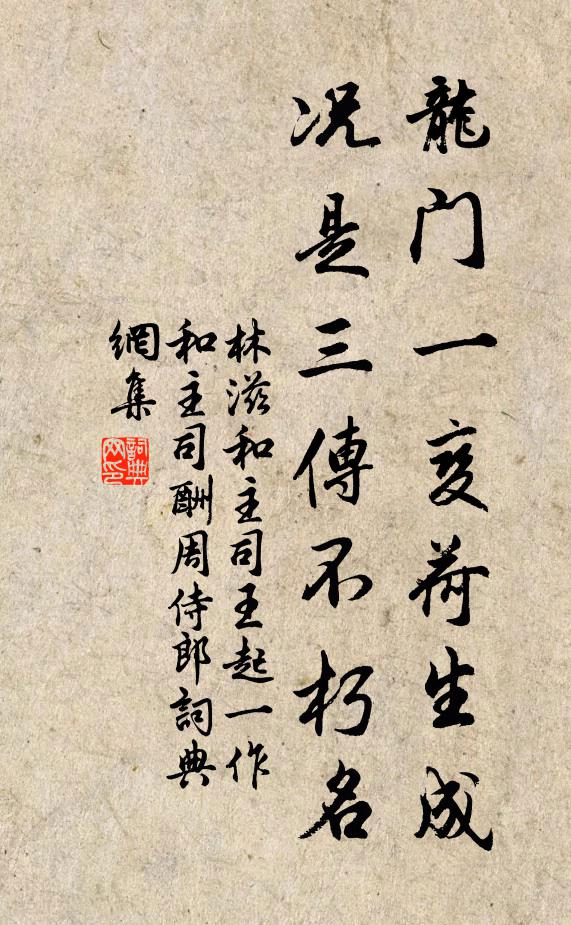 龍門一变荷生成
况是三傳不朽名
林滋和主司王起一作
和主司酬周侍郎詞典
網集
詞典网印